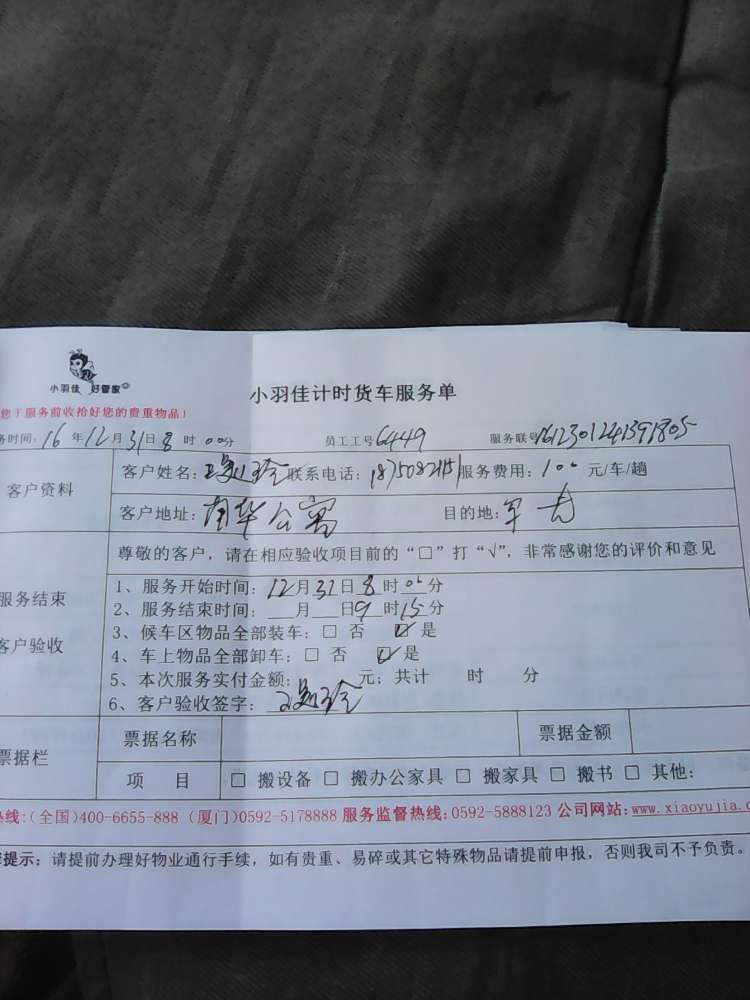 小羽佳 好管家
小羽佳计时货车服务单
您于服务前收拾好您的贵重物品!
务时间:16年12月31日8时00分 员工工号6449 服务联号1612301241391805
客户资料
客户姓名: 联系电话: 服务费用:100元/车/趟
客户地址:南华公寓 目的地:
尊敬的客户,请在相应验收项目前的“□”打“√”,非常感谢您的评价和意见
服务结束
客户验收
1、服务开始时间:12月31日8时00分
2、服务结束时间:__月__日9时15分
3、候车区物品全部装车:□ 否 ☑ 是
4、车上物品全部卸车:□ 否 ☑ 是
5、本次服务实付金额:____元;共计 时 分
6、客户验收签字:
票据栏
票据名称 票据金额
项 目 □ 搬设备 □ 搬办公家具 □ 搬家具 □ 搬书 □ 其他:
热线:(全国)400-6655-888 (厦门)0592-5178888 服务监督热线:0592-5888123 公司网站:www.xiaoyujia.c
提示:请提前办理好物业通行手续,如有贵重、易碎或其它特殊物品请提前申报,否则我司不予负责。